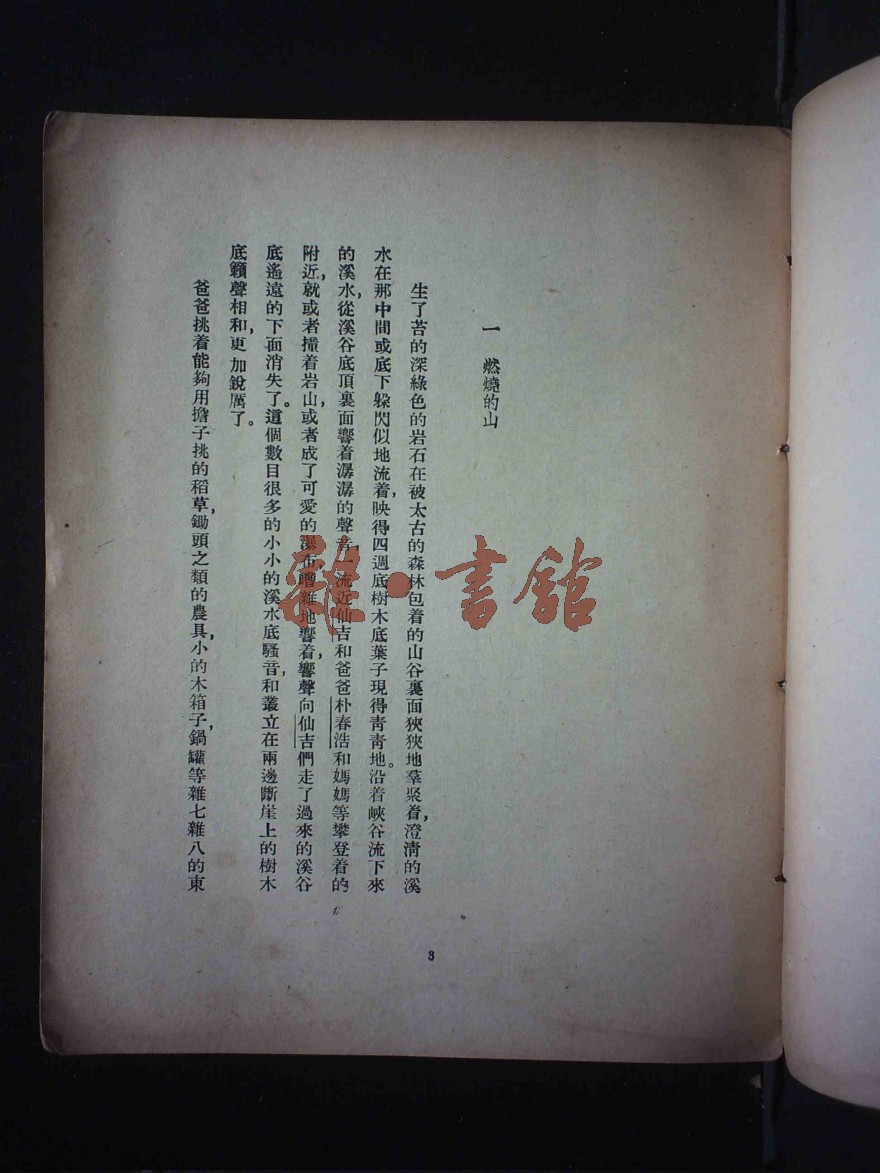 一　燃燒的山
生了苔的深綠色的岩石在被太古的森林包着的山谷裏面狹狹地羣聚着，澄清的溪
水在那中間或底下躱閃似地流着，映得四週底樹木底葉子現得青青地。沿着峽谷流下來
的溪水，從溪谷底頂裏面響着潺潺的聲音，一流近仙吉和爸爸朴春浩和媽媽等攀登着的
附近，就或者撞着岩山，或者成了可愛的瀑布，嘈雜地響着，響聲向仙吉們走了過來的溪谷
底遙遠的下面消失了。這個數目很多的小小的溪水底騷音，和叢立在兩邊斷崖上的樹木
底籟聲相和，更加銳厲了。
爸爸挑着能夠用擔子挑的稻草，鋤頭之類的農具，小的木箱子，鍋罐等雜七雜八的東
3
雜·書館